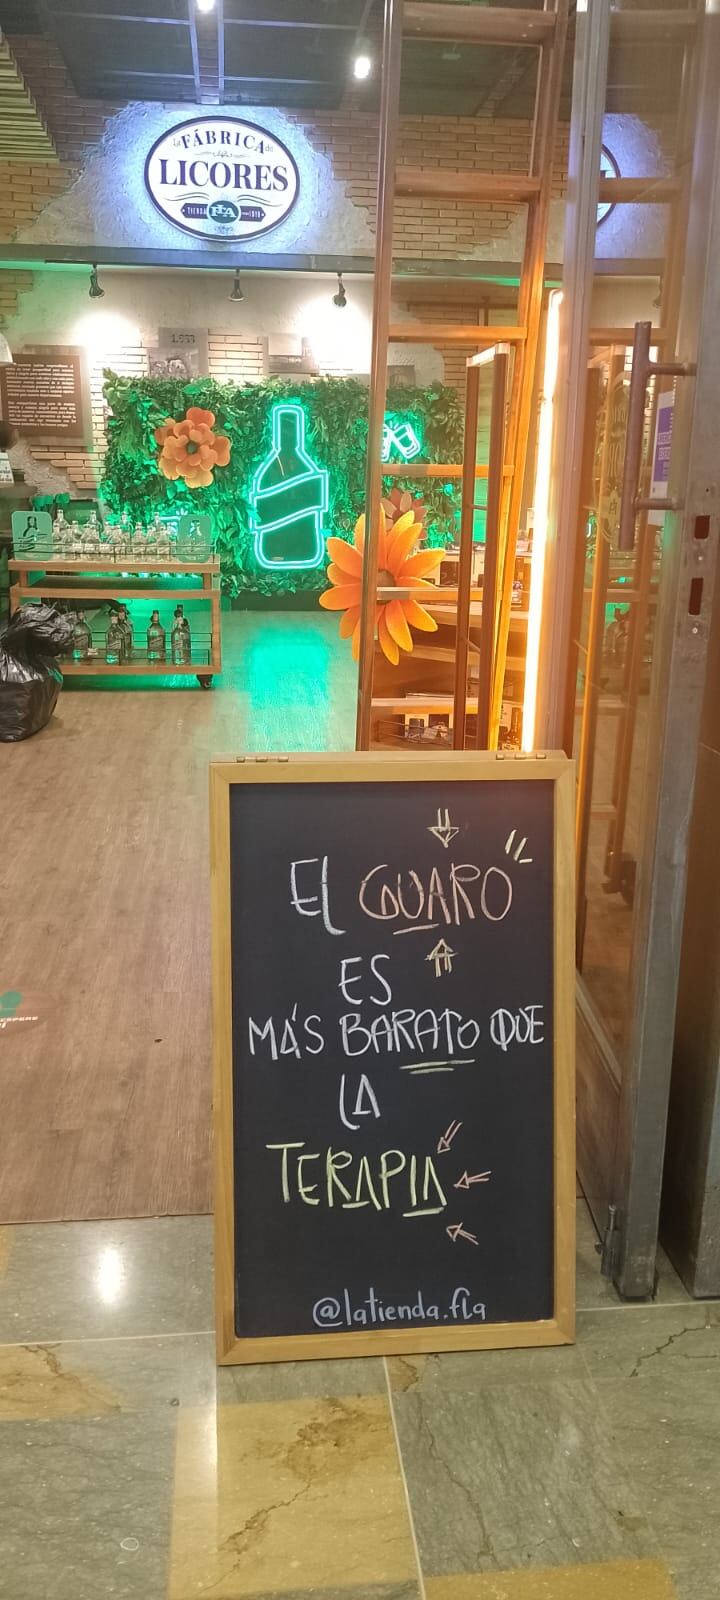 La FÁBRICA de
LICORES
TIENDA FLA
1933
El GUARO
ES
MÁS BARATO QUE
LA
TERAPIA
@latienda.fla